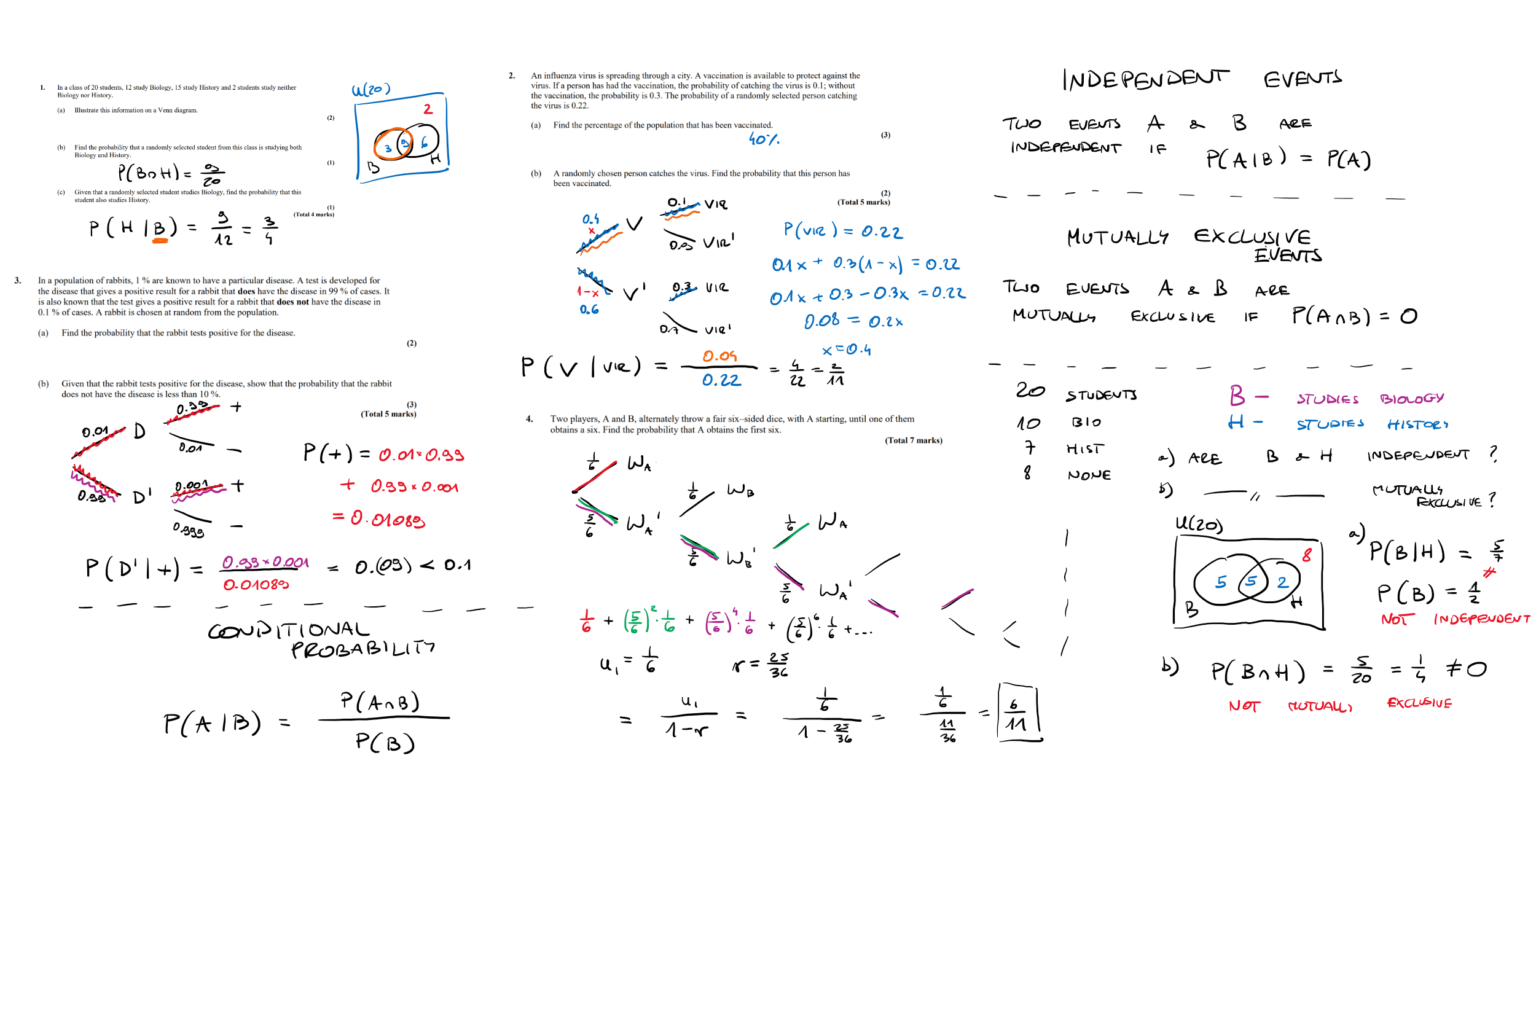 1. In a class of 20 students, 12 study Biology, 15 study History and 2 students study neither
Biology nor History.
(a) Illustrate this information on a Venn diagram.
(2)
(b) Find the probability that a randomly selected student from this class is studying both
Biology and History.
(1)
P(B∩H) = 9/20
(c) Given that a randomly selected student studies Biology, find the probability that this
student also studies History.
(1)
(Total 4 marks)
P(H|B) = 9/12 = 3/4
U(20)
2
3 9 6
B H
3. In a population of rabbits, 1 % are known to have a particular disease. A test is developed for
the disease that gives a positive result for a rabbit that does have the disease in 99 % of cases. It
is also known that the test gives a positive result for a rabbit that does not have the disease in
0.1 % of cases. A rabbit is chosen at random from the population.
(a) Find the probability that the rabbit tests positive for the disease.
(2)
(b) Given that the rabbit tests positive for the disease, show that the probability that the rabbit
does not have the disease is less than 10 %.
(3)
(Total 5 marks)
0.99 +
0.01 D
0.01 −
0.001 +
0.99 D'
0.999 −
P(+) = 0.01×0.99
+ 0.99×0.001
= 0.01089
P(D'|+) = 0.99×0.001/0.01089 = 0.(09) < 0.1
CONDITIONAL
PROBABILITY
P(A|B) = P(A∩B)/P(B)
2. An influenza virus is spreading through a city. A vaccination is available to protect against the
virus. If a person has had the vaccination, the probability of catching the virus is 0.1; without
the vaccination, the probability is 0.3. The probability of a randomly selected person catching
the virus is 0.22.
(a) Find the percentage of the population that has been vaccinated.
40%
(3)
(b) A randomly chosen person catches the virus. Find the probability that this person has
been vaccinated.
(2)
(Total 5 marks)
0.1 VIR
0.4
x V
0.9 VIR'
0.3 VIR
1-x V'
0.6
0.7 VIR'
P(VIR) = 0.22
0.1x + 0.3(1-x) = 0.22
0.1x + 0.3 - 0.3x = 0.22
0.08 = 0.2x
x = 0.4
P(V|VIR) = 0.04/0.22 = 4/22 = 2/11
4. Two players, A and B, alternately throw a fair six–sided dice, with A starting, until one of them
obtains a six. Find the probability that A obtains the first six.
(Total 7 marks)
1/6 WA
5/6 WA'
1/6 WB
5/6 WB'
1/6 WA
5/6 WA'
1/6 + (5/6)²·1/6 + (5/6)⁴·1/6 + (5/6)⁶·1/6 + ...
u₁ = 1/6 r = 25/36
= u₁/1-r = 1/6/1 - 25/36 = 1/6/11/36 = 6/11
INDEPENDENT EVENTS
TWO EVENTS A & B ARE
INDEPENDENT IF P(A|B) = P(A)
MUTUALLY EXCLUSIVE
EVENTS
TWO EVENTS A & B ARE
MUTUALLY EXCLUSIVE IF P(A∩B) = 0
20 STUDENTS
10 BIO
7 HIST
8 NONE
B - STUDIES BIOLOGY
H - STUDIES HISTORY
a) ARE B & H INDEPENDENT ?
b) —— // —— MUTUALLY
EXCLUSIVE ?
U(20)
8
5 5 2
B H
a) P(B|H) = 5/7
≠
P(B) = 1/2
NOT INDEPENDENT
b) P(B∩H) = 5/20 = 1/4 ≠ 0
NOT MUTUALLY EXCLUSIVE